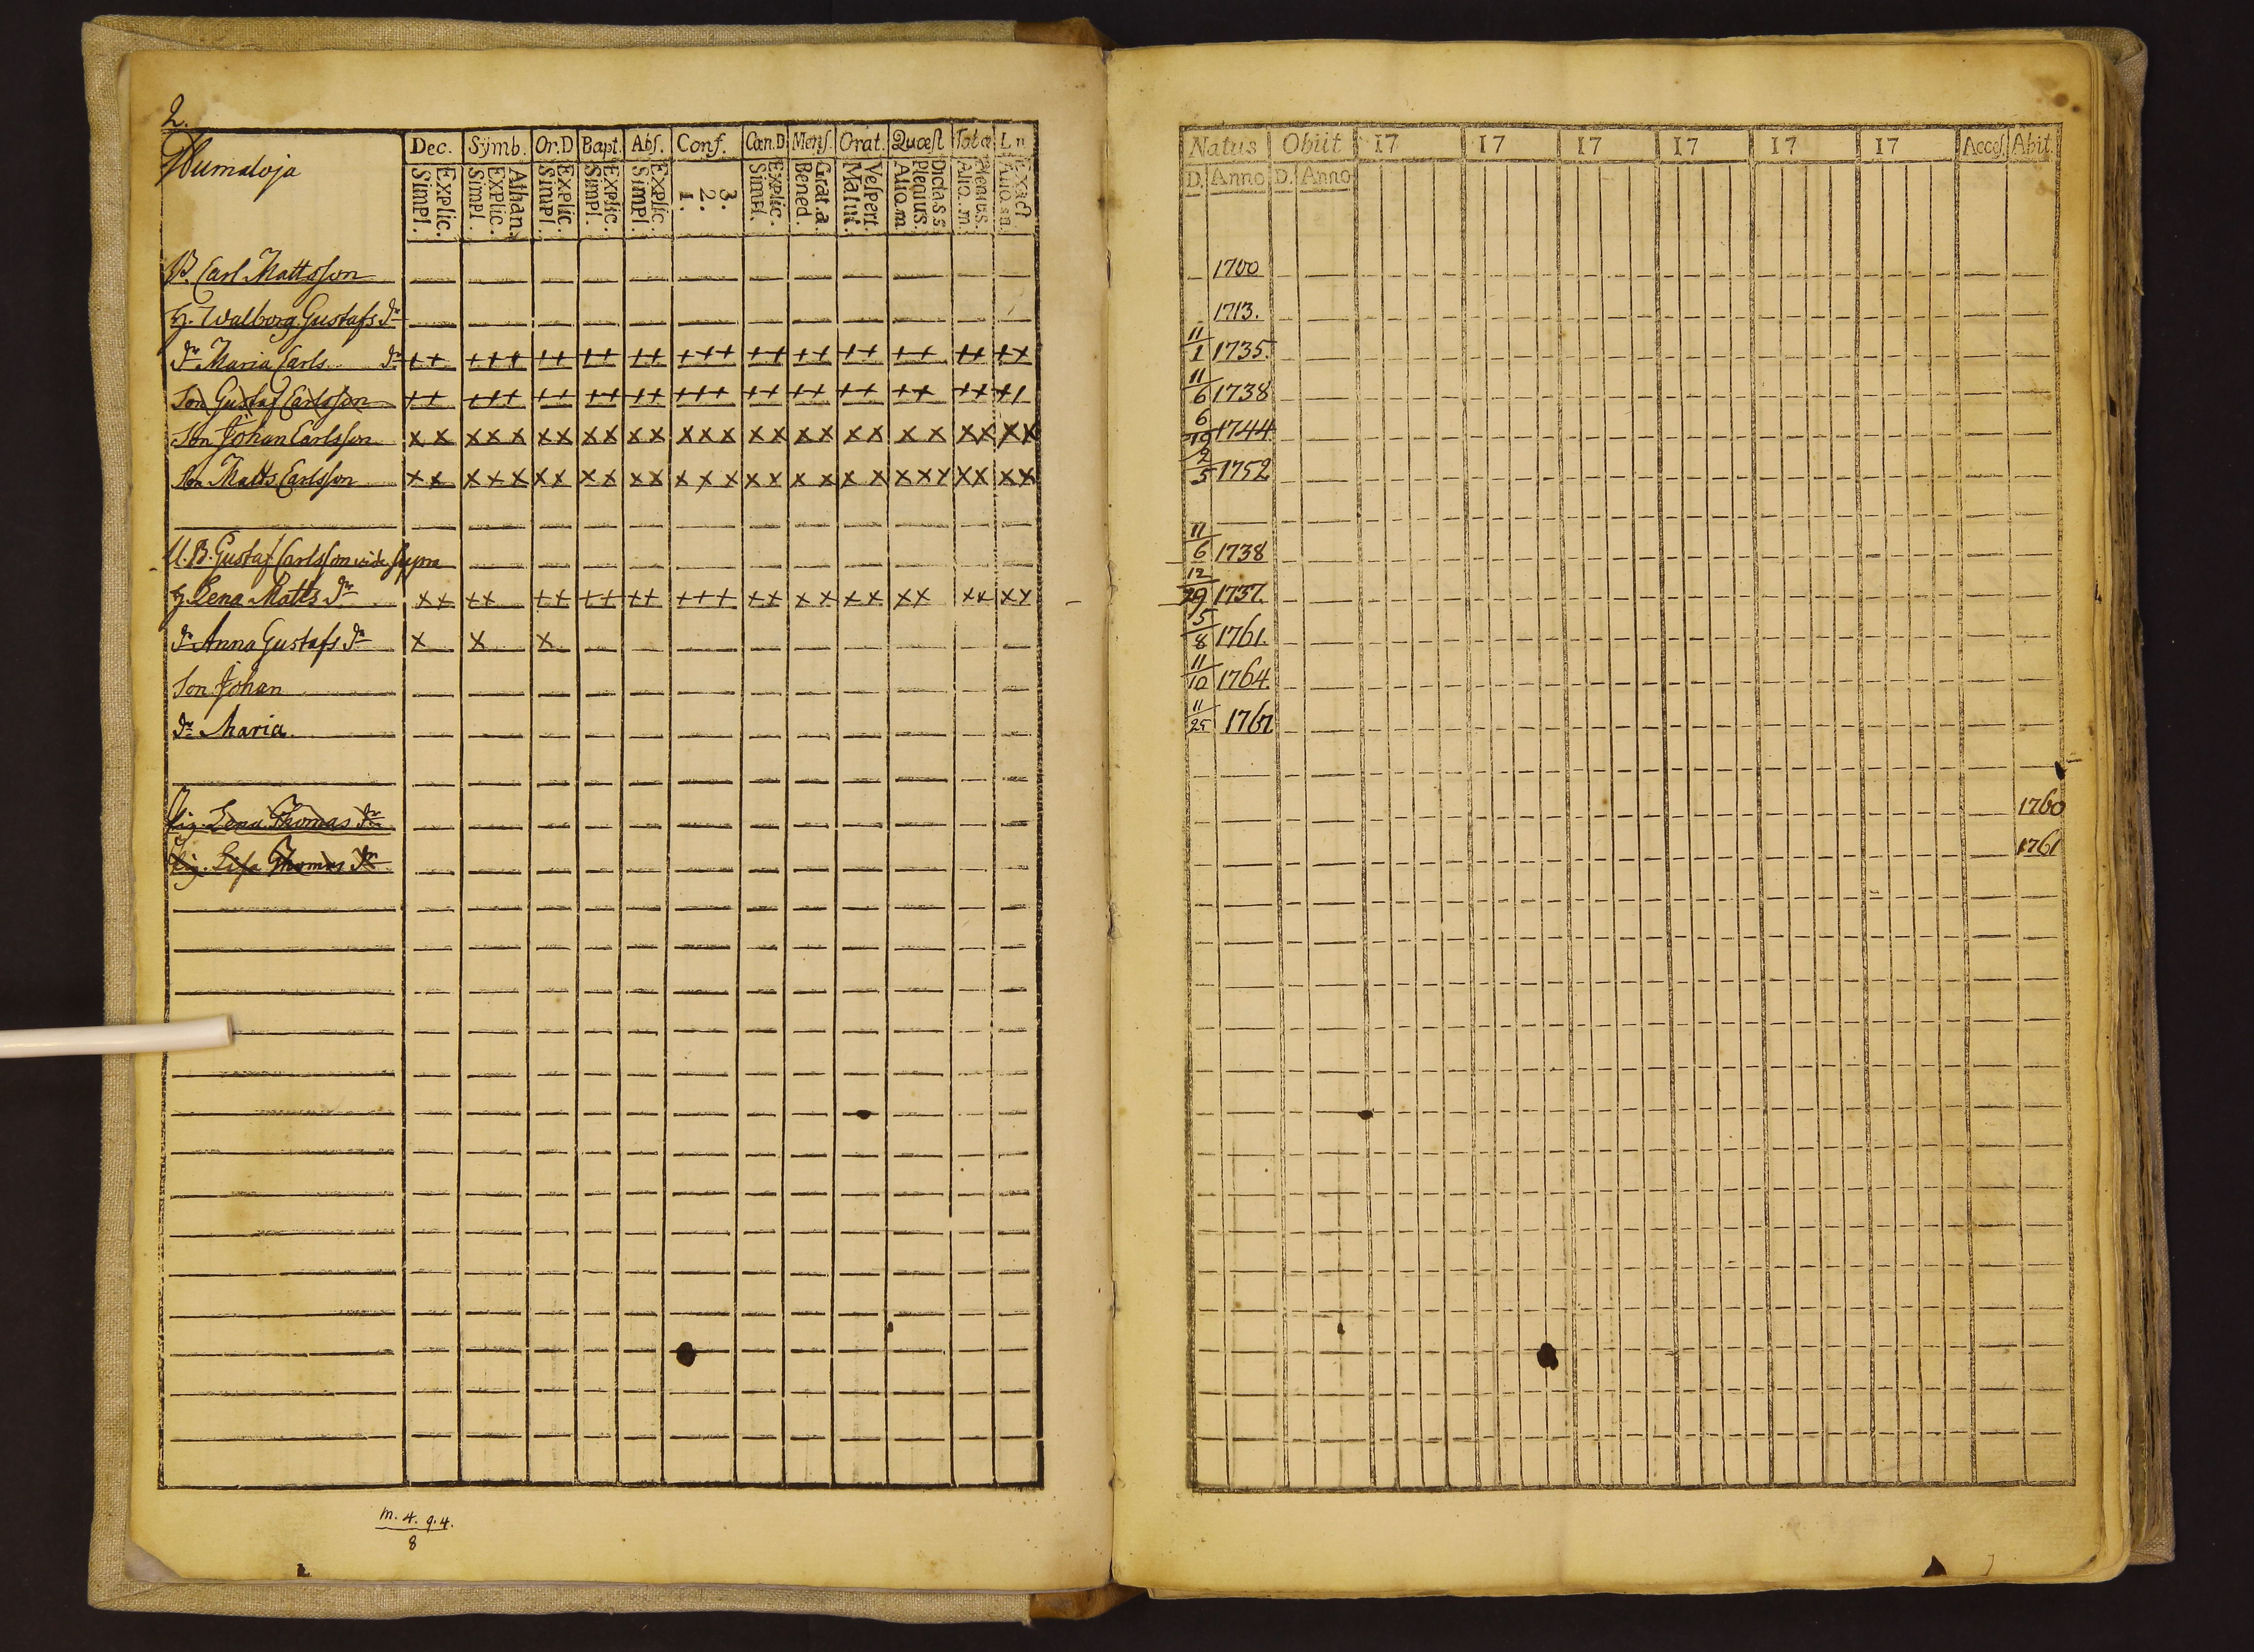 2.
Humaloja
Dec. Symb. Or.D Bapt. Abs. Conf. Cœn.D. Mens. Orat. Quæst Totæ L n
Explic. Simpl. Athan. Explic. Simpl. Explic. Simpl. Explic. Simpl. Explic. Simpl. 3. 2. 1. Explic. Simpl. Grat.a. Bened. Vespert. Matut. Dictass Plenius. Alio.m Plenius. Alio.m Exact Alio.m
B. Carl Mattsson
H. Walborg Gustafs Dr
Dr Maria Carls Dr ++ +++ ++ ++ ++ +++ ++ ++ ++ ++ ++ ++
Son Gustaf Carlsson ++ +++ ++ ++ ++ +++ ++ ++ ++ ++ ++ ++
Son Johan Carlsson x x x x x x x x x x x x x x x x x x x x x x x x x x
Son Matts Carlsson x x x x x x x x x x x x x x x x x x x x x x x x x x x
U. B. Gustaf Carlsson vide supra
H. Lena Matts Dr x x ++ ++ ++ ++ +++ ++ x x x x x x x x x x
Dr Anna Gustafs Dr x x x
Son Johan
Dr Maria
Pig. Lena Thomas Dr
Pig. Lisa Thomas Dr
m. 4. q. 4.
8
Natus Obiit 17 17 17 17 17 17 Acces. Abit.
D. Anno D. Anno
1700
1713.
11/1 1735.
11/6 1738
6/19 1744
2/5 1752
11/6 1738
12/29 1737.
5/8 1761.
11/10 1764.
11/25 1767
1760
1761